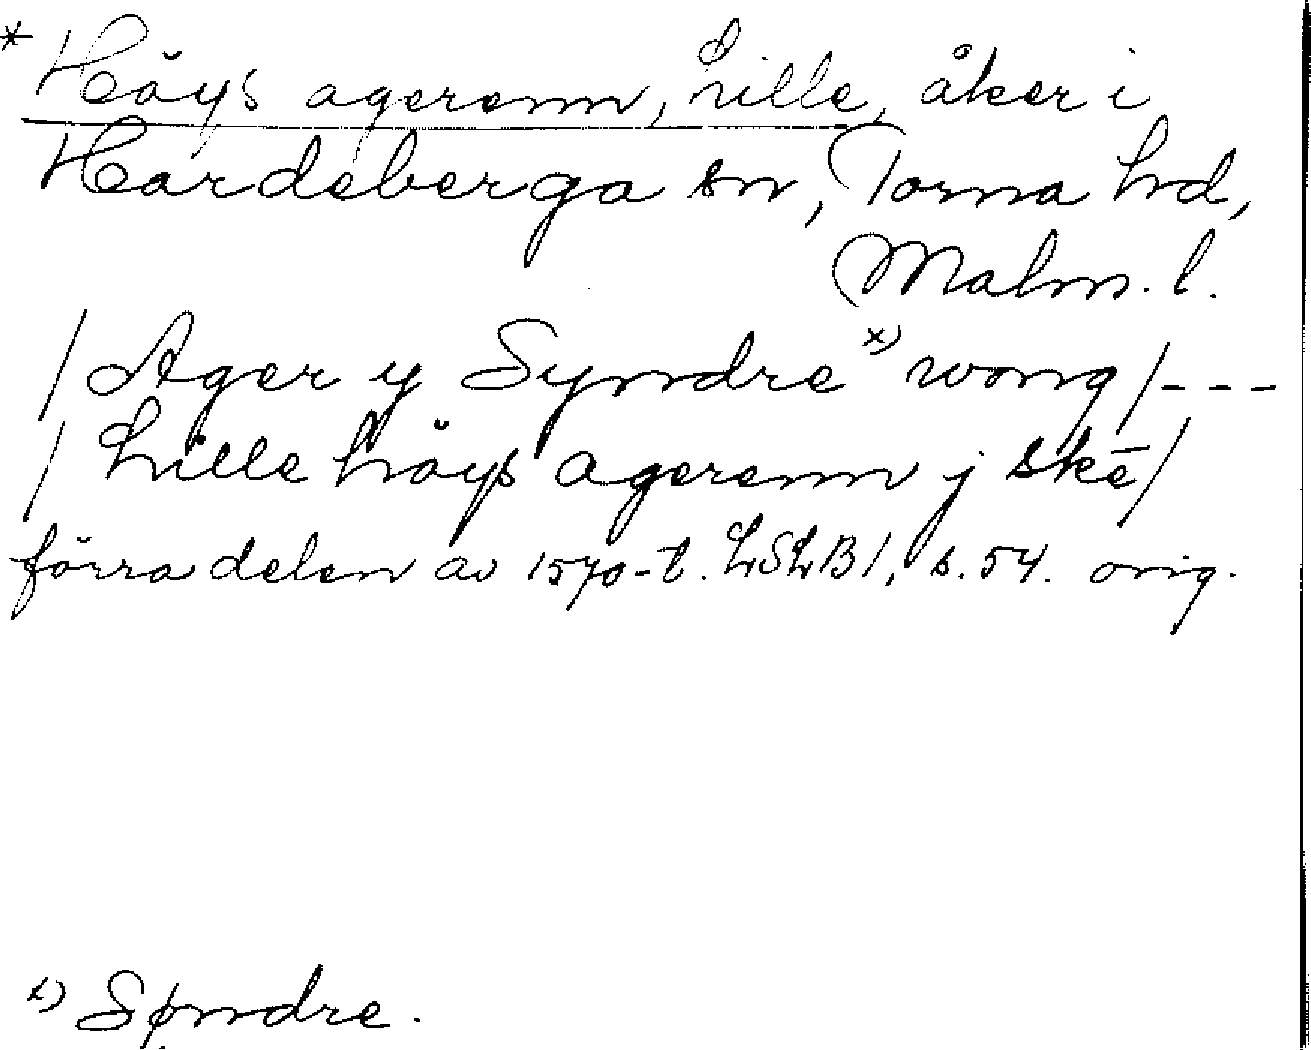 * Höys agerenn, Lille, åker i
Hardeberga sn, Torna hd,
Malm. l.
/ Ager y Syndre x) wong / - - -
/ Lille höys agerenn j skē /
förra delen av 1570-t. LSLB 1, s. 54. orig.
x) Spndre.